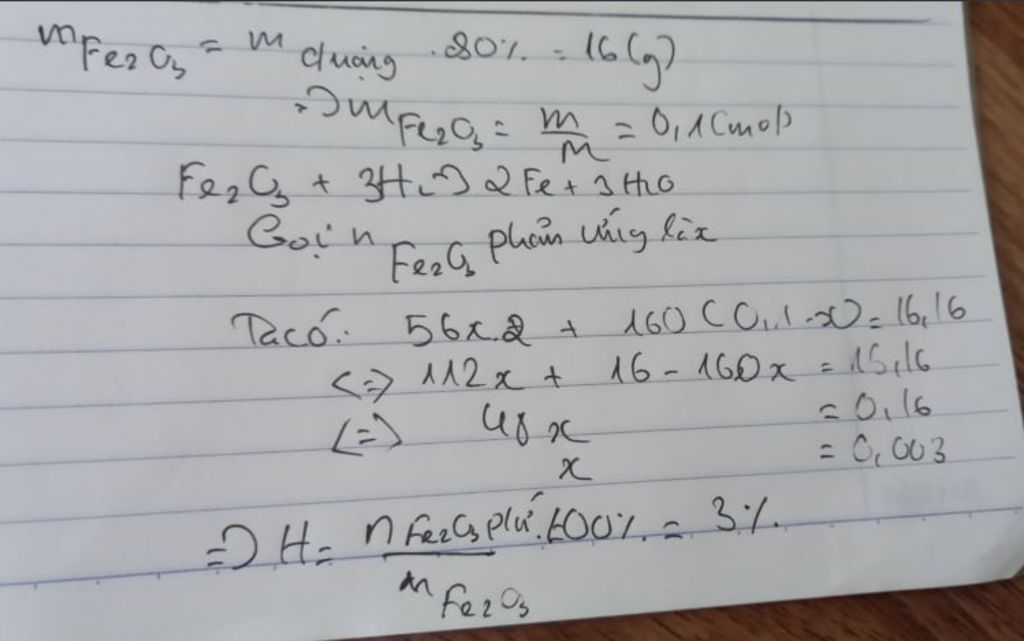 mFe2O3 = m quặng . 80% = 16 (g)
=> nFe2O3 = m/M = 0,1 (mol)
Fe2O3 + 3H2 -> 2Fe + 3H2O
Gọi n Fe2O3 phản ứng là x
Ta có: 56x.2 + 160(0,1-x) = 16,16
<=> 112x + 16 - 160x = 15,16
<=> 48x = 0,16
x = 0,003
=> H = nFe2O3 pứ.100% / nFe2O3 = 3%